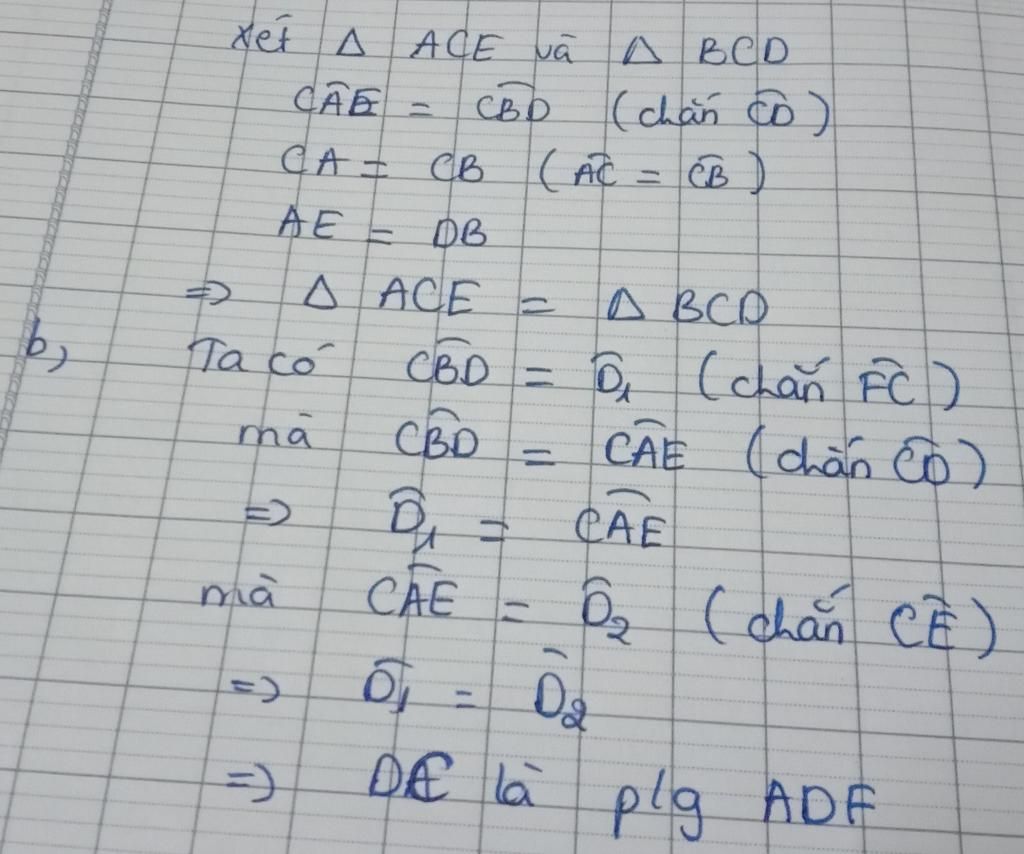 xét Δ ACE và Δ BCD
CÂE = CB̂D (chắn C͡D)
CA = CB (A͡C = C͡B)
AE = DB
=> Δ ACE = Δ BCD
b, Ta có CB̂D = D̂₁ (chắn F͡C)
mà CB̂D = CÂE (chắn C͡D)
=> D̂₁ = CÂE
mà CÂE = D̂₂ (chắn C͡E)
=> D̂₁ = D̂₂
=> DC là p/g ADF